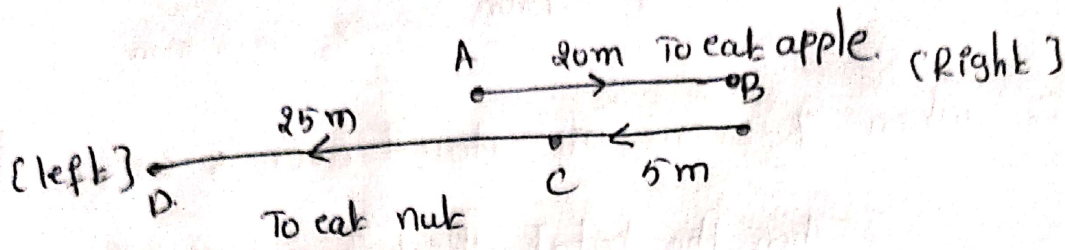 A 20m To eat apple. (Right]
B
25m
[left] D. C 5m
To eat nut